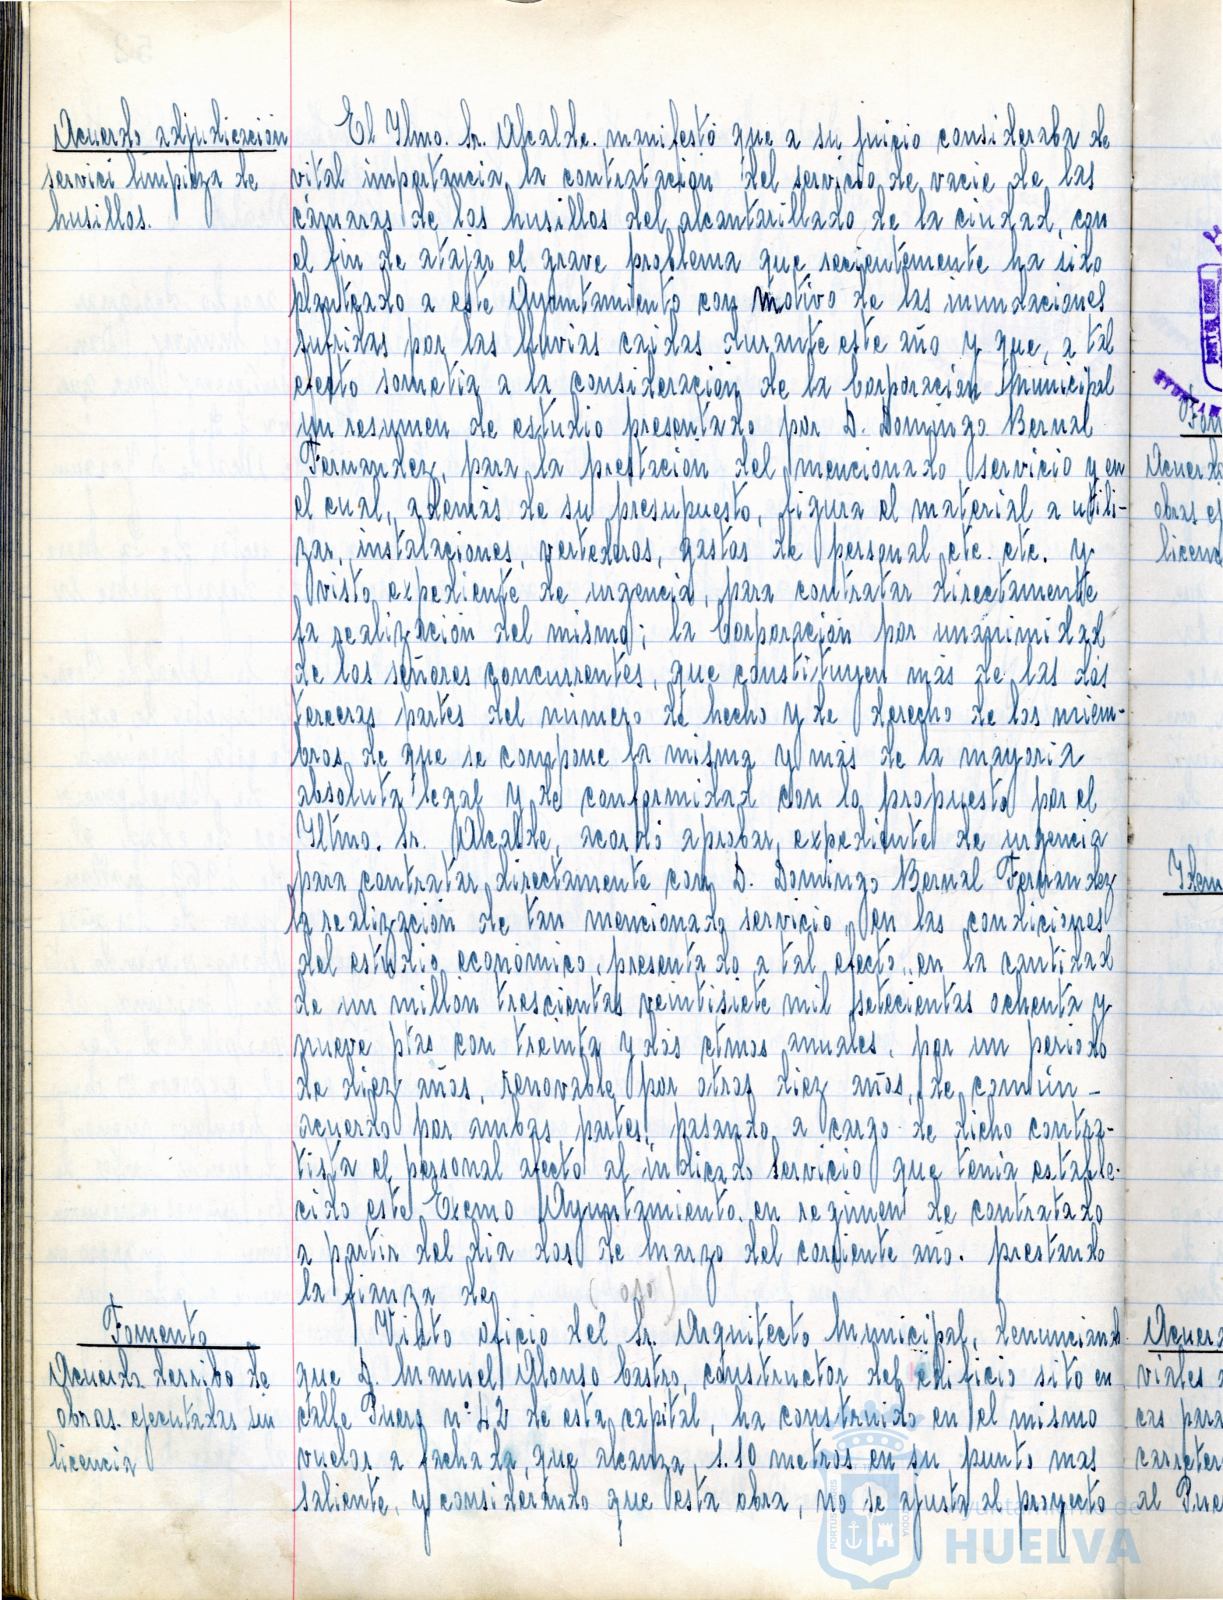 Acuerdo adjudicación
servici limpieza de
husillos.
El Iltmo. Sr. Alcalde. manifestó que a su juicio consideraba de
vital importancia la contratación del servicio de vacie de las
cámaras de los husillos del alcantarillado de la ciudad, con
el fin de atajar el grave problema que recientemente ha sido
planteado a este Ayuntamiento con motivo de las inundaciones
sufridas por las lluvias caidas durante este año y que, a tal
efecto sometia a la consideración de la Corporación Municipal
un resumen de estudio presentado por D. Domingo Bernal
Fernandez, para la prestación del mencionado servicio y en
el cual, además de su presupuesto, figura el material a utili-
zar, instalaciones, vertederos, gastos de personal etc. etc. y
visto expediente de urgencia, para contratar directamente
la realización del mismo; la Corporación por unanimidad
de los señores concurrentes, que constituyen más de las dos
terceras partes del número de hecho y de derecho de los miem-
bros de que se compone la misma y más de la mayoria
absoluta legal y de conformidad con lo propuesto por el
Iltmo. Sr. Alcalde, acordó aprobar expediente de urgencia
para contratar directamente con D. Domingo Bernal Fernandez
la realización de tan mencionado servicio en las condiciones
del estudio económico, presentado a tal efecto, en la cantidad
de un millón trescientas veintisiete mil setecientas ochenta y
nueve ptas con treinta y dos ctmos anuales, por un periodo
de diez años, renovable por otros diez años, de común -
acuerdo por ambas partes, pasando a cargo de dicho contra-
tista el personal afecto al indicado servicio que tenia estable-
cido este Excmo Ayuntamiento. en regimen de contratado
a partir del dia dos de marzo del corriente año. prestando
la fianza de
Fomento
Acuerdo derribo de
obras. ejecutadas sin
licencia
Visto oficio del Sr. Arquitecto Municipal, denunciando
que D. Manuel Alonso Castro, constructor del edificio sito en
calle Puerto nº 42 de esta capital, ha construido en el mismo
vuelos a fachada, que alcanza 1.10 metros en su punto mas
saliente, y considerando que esta obra, no se ajusta al proyecto
Acuerdo
obras es
licenc
Idem
Acuerd
viales
cas para
carreter
al Puer
Ayuntamiento de
HUELVA